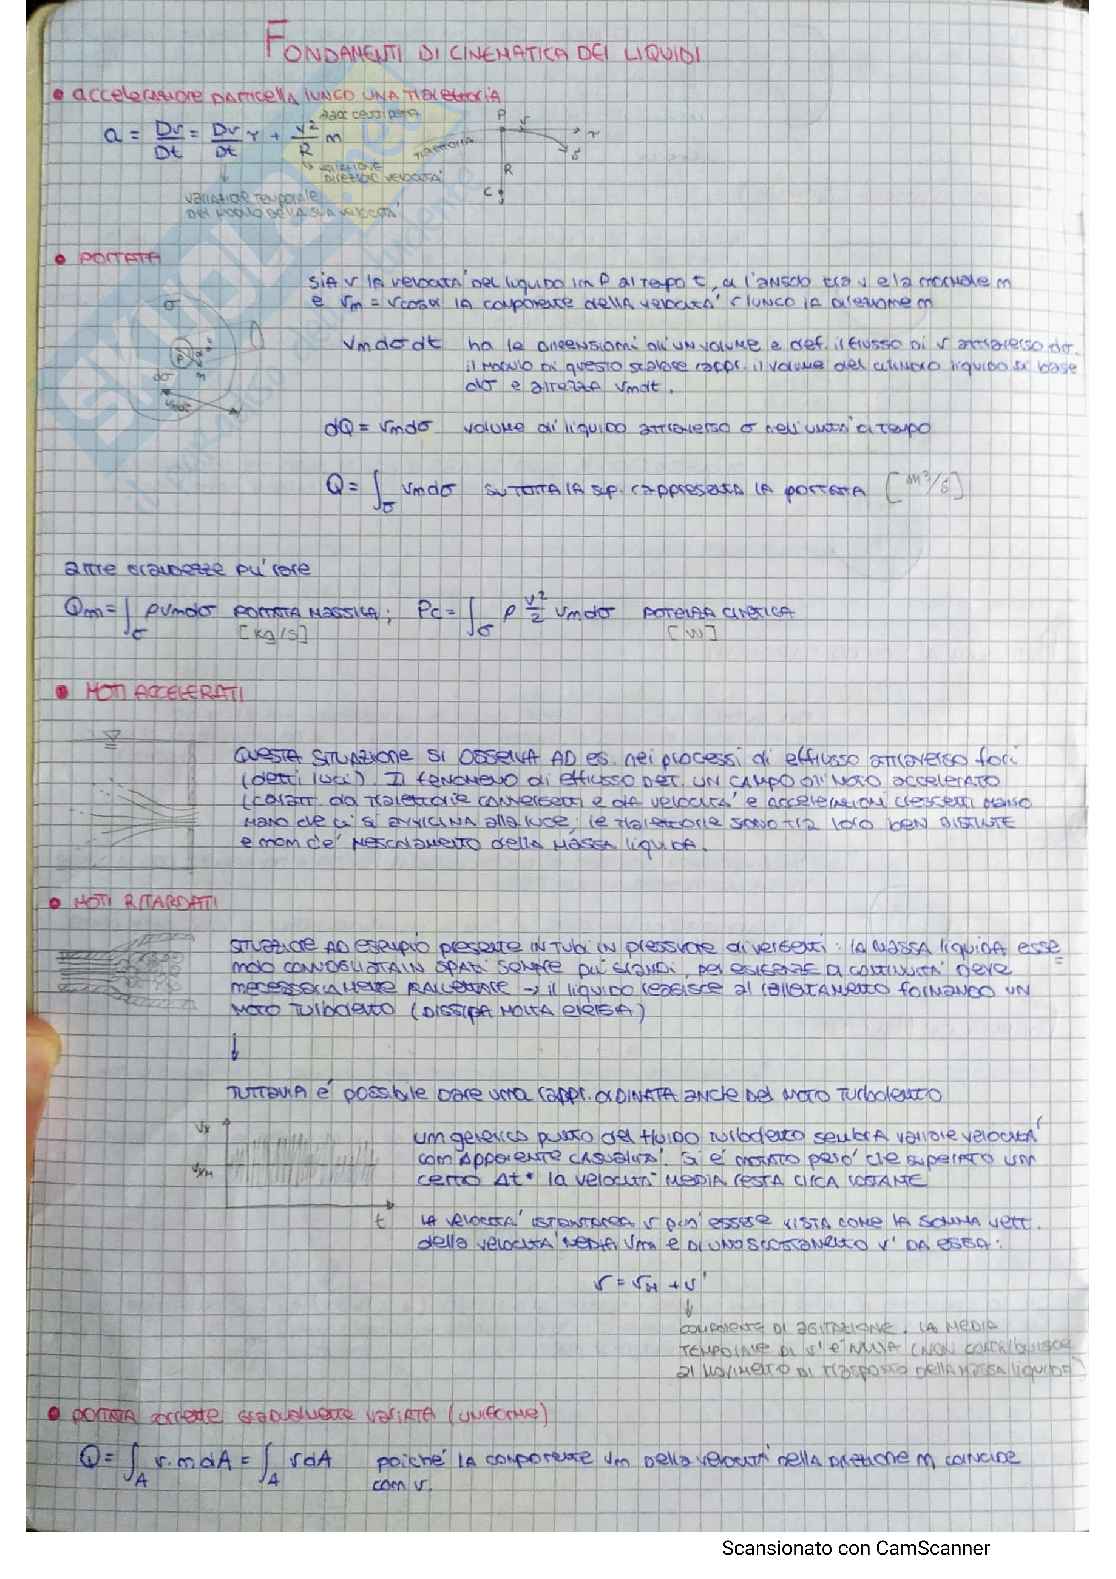 FONDAMENTI DI CINEMATICA DEI LIQUIDI
• accelerazione particella lungo una traiettoria
a = Dv/Dt = Dv/Dt τ + v²/R n
acc centripeta
variazione direzione velocità
variazione temporale del modulo della sua velocità
traiettoria
P v τ s
R
C
• PORTATA
SIA v la velocità del liquido in P al tempo t, α l'angolo tra v e la normale n
e vn = v cosα la componente della velocità v lungo la direzione n
vn dσ dt ha le dimensioni di un volume e def. il flusso di v attraverso dσ.
il modulo di questo scalare rappr. il volume del cilindro liquido di base
dσ e altezza vndt.
σ
P
dσ n
dQ = vn dσ volume di liquido attraverso σ nell'unità di tempo
Q = ∫σ vn dσ su tutta la sup. rappresenta la portata [m³/s]
altre grandezze più rare
Qm = ∫σ ρ vn dσ PORTATA MASSICA; Pc = ∫σ ρ v²/2 vn dσ POTENZA CINETICA
[kg/s] [W]
• MOTI ACCELERATI
QUESTA SITUAZIONE SI OSSERVA AD es. nei processi di efflusso attraverso fori
(detti luci). Il fenomeno di efflusso det. UN CAMPO DI MOTO accelerato
(caratt. da traiettorie convergenti e da velocità e accelerazioni crescenti mano
mano che ci si avvicina alla luce; le traiettorie sono tra loro ben DISTINTE
e non c'è mescolamento della massa liquida.
• MOTI RITARDATI
SITUAZIONE AD esempio presente IN TUBI IN pressione divergenti: la massa liquida esse
ndo convogliata IN SPAZI SEMPRE più grandi, per esigenze di continuità deve
necessariamente rallentare → il liquido reagisce al rallentamento formando UN
MOTO TURBOLENTO (DISSIPA MOLTA ENERGIA)
↓
TUTTAVIA è possibile dare una rappr. ORDINATA anche del MOTO TURBOLENTO
vx
vxm
t
un generico punto del fluido turbolento sembra variare velocità
con apparente casualità. Si è notato però che superato un
certo Δt* la velocità MEDIA resta circa costante
LA VELOCITÀ ISTANTANEA v può essere VISTA COME LA SOMMA vett.
della velocità MEDIA vm e di uno scostamento v' DA ESSA:
v = vM + v'
↓
componente DI AGITAZIONE. LA MEDIA
TEMPORALE DI v' è NULLA (NON CONTRIBUISCE
al MOVIMENTO DI TRASPORTO della MASSA liquida)
• PORTATA corrente gradualmente VARIATA (UNIFORME)
Q = ∫A v·n dA = ∫A v dA poiché la componente vn della velocità nella direzione n coincide
con v.
Scansionato con CamScanner